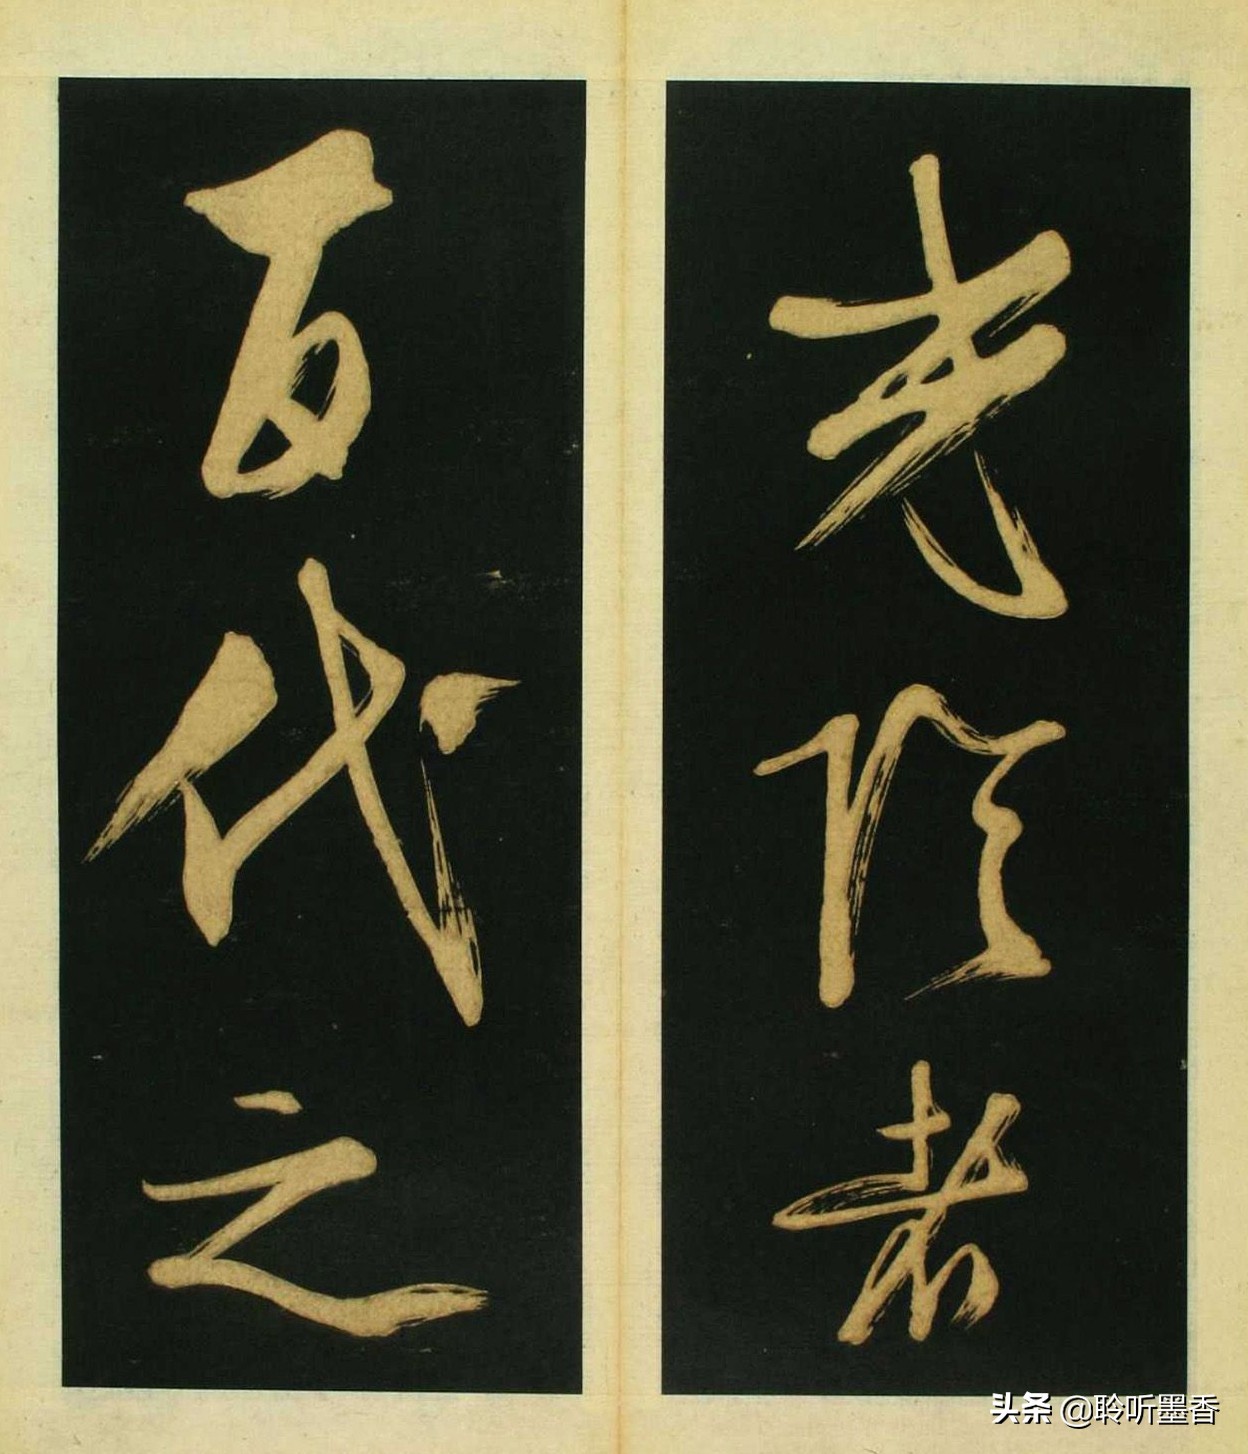 光陰者
百代之
头条 @聆听墨香